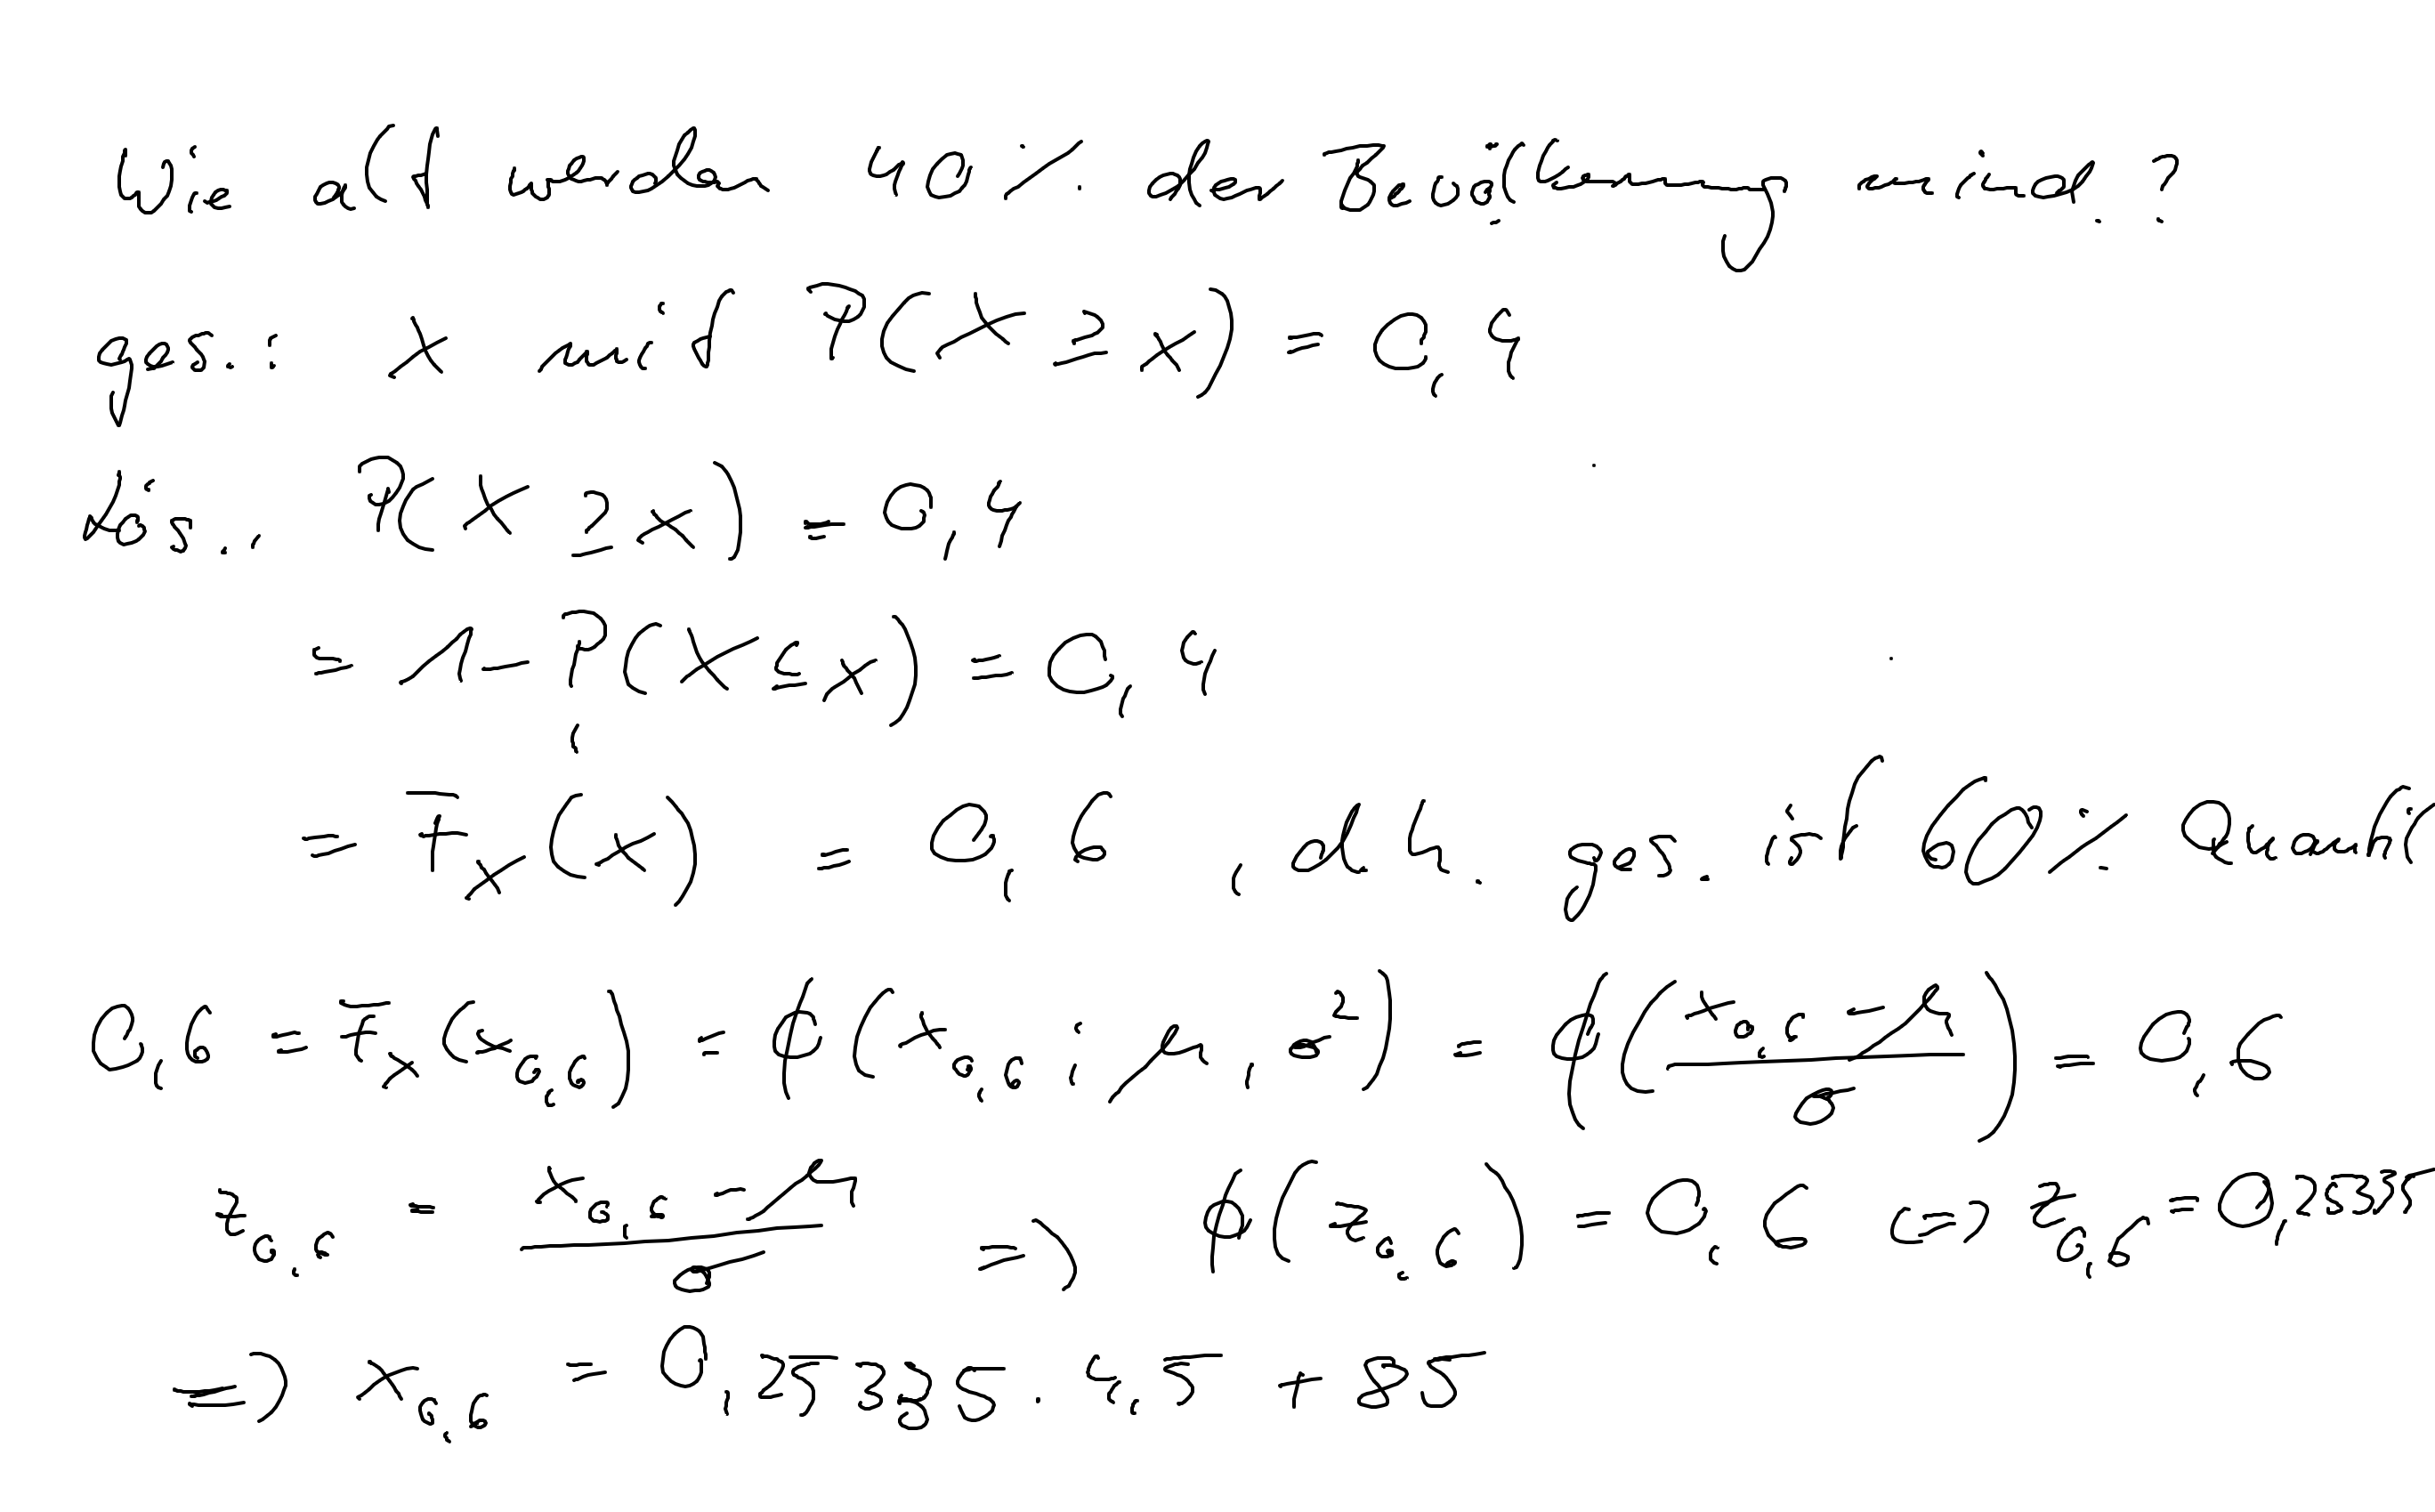 Wie alt werden 40 % der Bevölkerung mind.?
ges.: x mit P(X ≥ x) = 0,4
Lös.: P(X ≥ x) = 0,4
= 1 - P(X ≤ x) = 0,4
= F_X(x) = 0,6 , d.h. ges. ist 60% Quanti
0,6 = F_X(x_0,6) = ϕ(x_0,6; μ, σ²) = ϕ((x_0,6 - μ)/σ) = 0,6
z_0,6 = (x_0,6 - μ)/σ => ϕ(z_0,6) = 0,6 <=> z_0,6 = 0,2533
=> x_0,6 = 0,25335 · 4,5 + 85